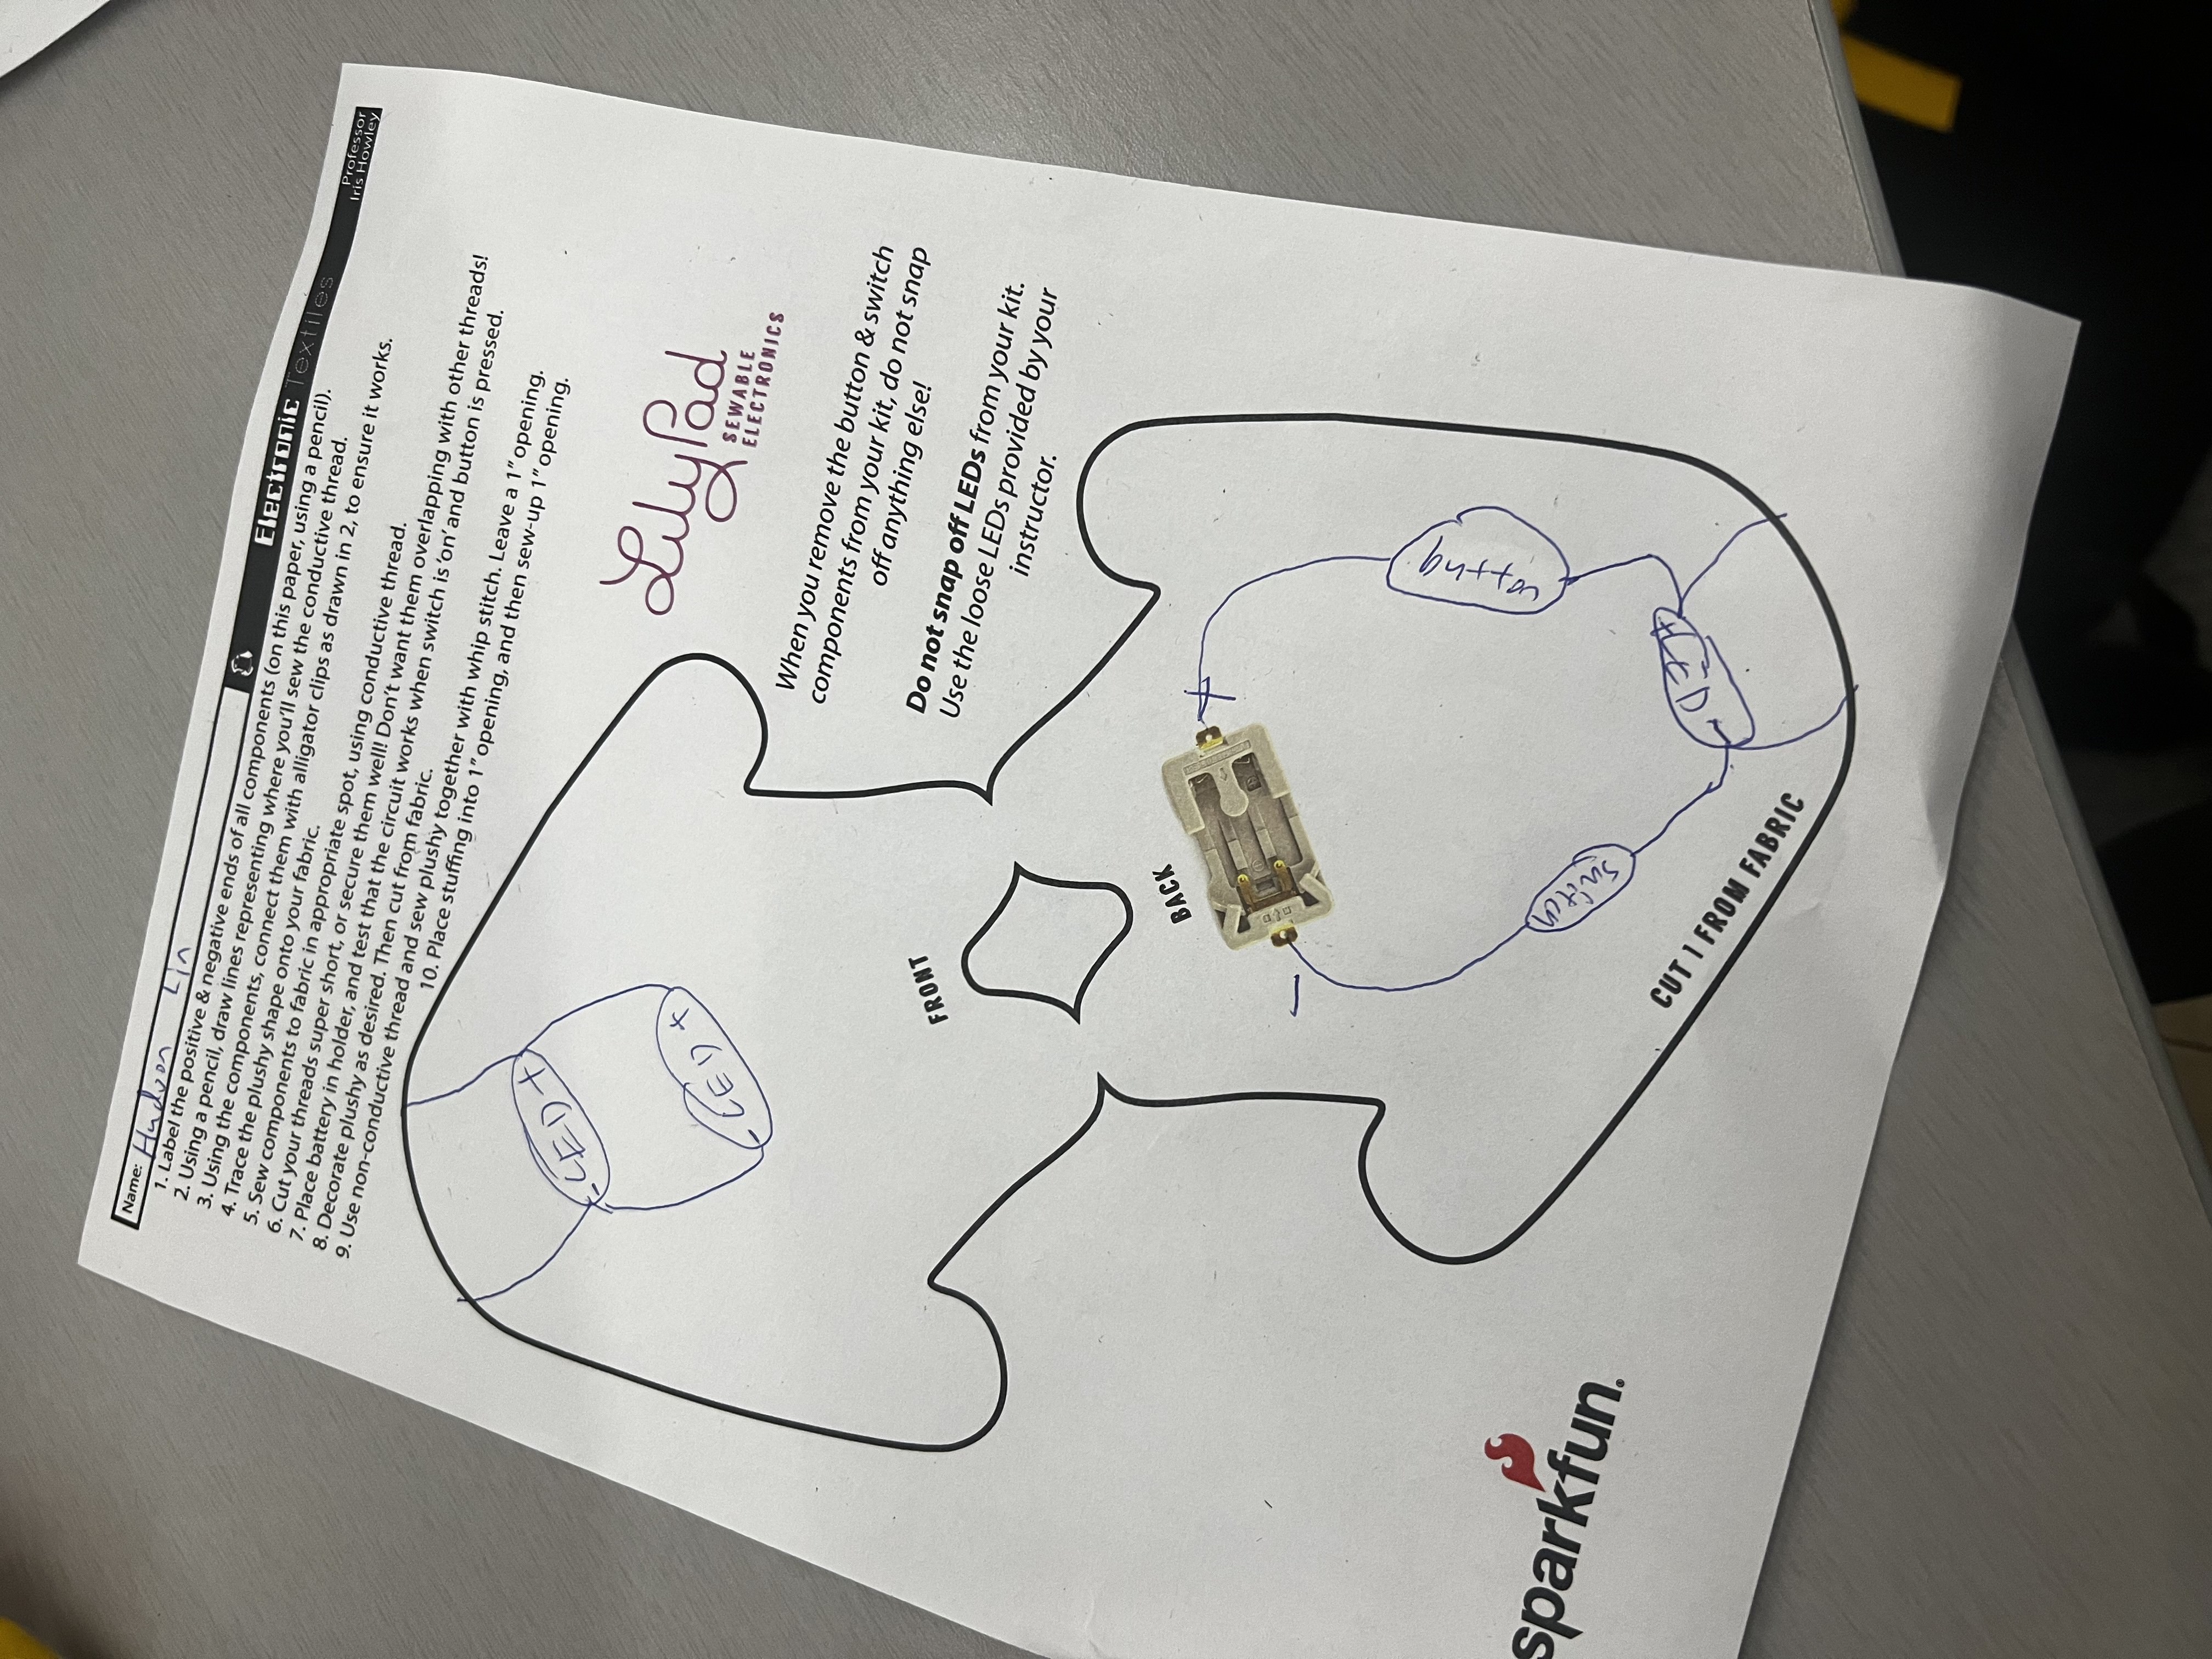 Name: Hudson Lin
Electronic Textiles
Professor
Iris Howley
1. Label the positive & negative ends of all components (on this paper, using a pencil).
2. Using a pencil, draw lines representing where you'll sew the conductive thread.
3. Using the components, connect them with alligator clips as drawn in 2, to ensure it works.
4. Trace the plushy shape onto your fabric.
5. Sew components to fabric in appropriate spot, using conductive thread.
6. Cut your threads super short, or secure them well! Don't want them overlapping with other threads!
7. Place battery in holder, and test that the circuit works when switch is 'on' and button is pressed.
8. Decorate plushy as desired. Then cut from fabric.
9. Use non-conductive thread and sew plushy together with whip stitch. Leave a 1" opening.
10. Place stuffing into 1" opening, and then sew-up 1" opening.
- LED +
- LED +
LilyPad
SEWABLE
ELECTRONICS
When you remove the button & switch
components from your kit, do not snap
off anything else!
Do not snap off LEDs from your kit.
Use the loose LEDs provided by your
instructor.
FRONT
BACK
+
-
button
switch
+ LED -
CUT 1 FROM FABRIC
sparkfun.